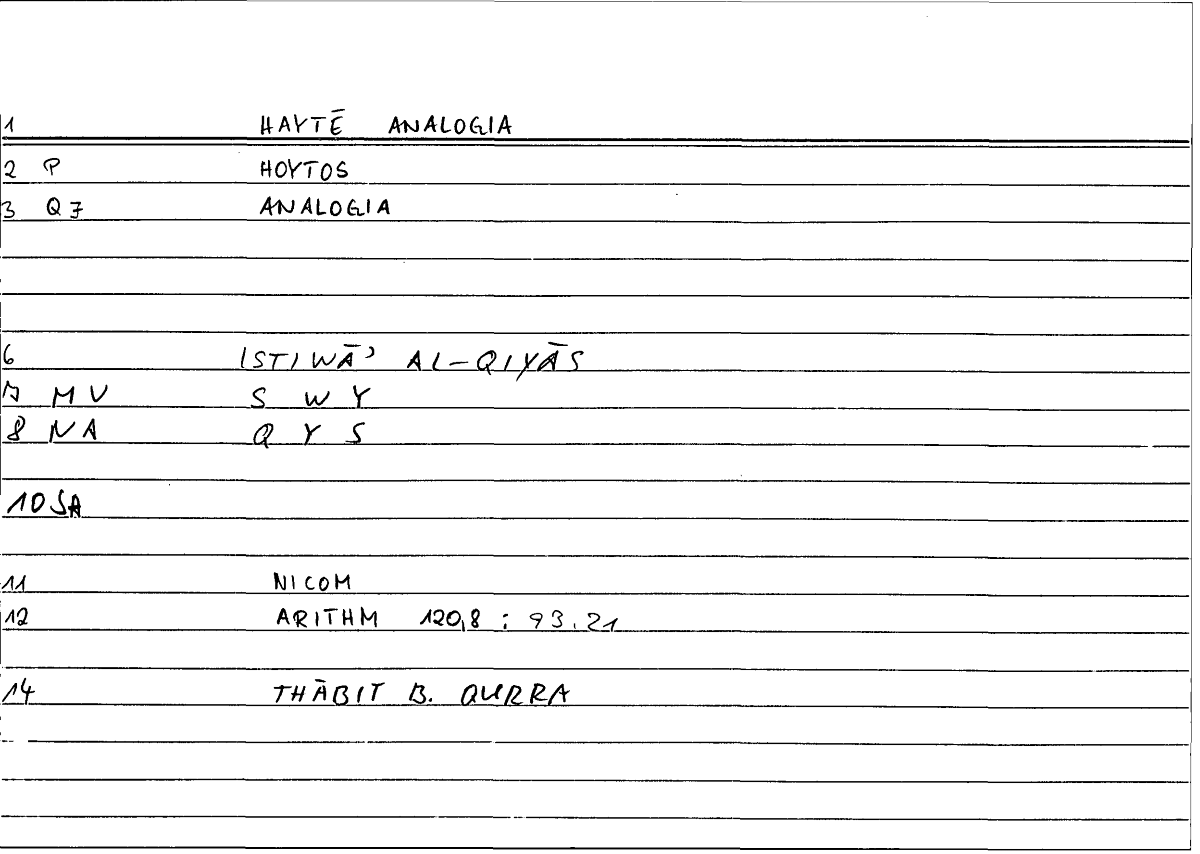 1 HAYTĒ ANALOGIA
2 P HOYTOS
3 Q7 ANALOGIA
6 ISTIWĀʾ AL-QIYĀS
7 MV S W Y
8 NA Q Y S
10 SA
11 NICOM
12 ARITHM 120,8 : 93.21
14 THĀBIT B. QURRA